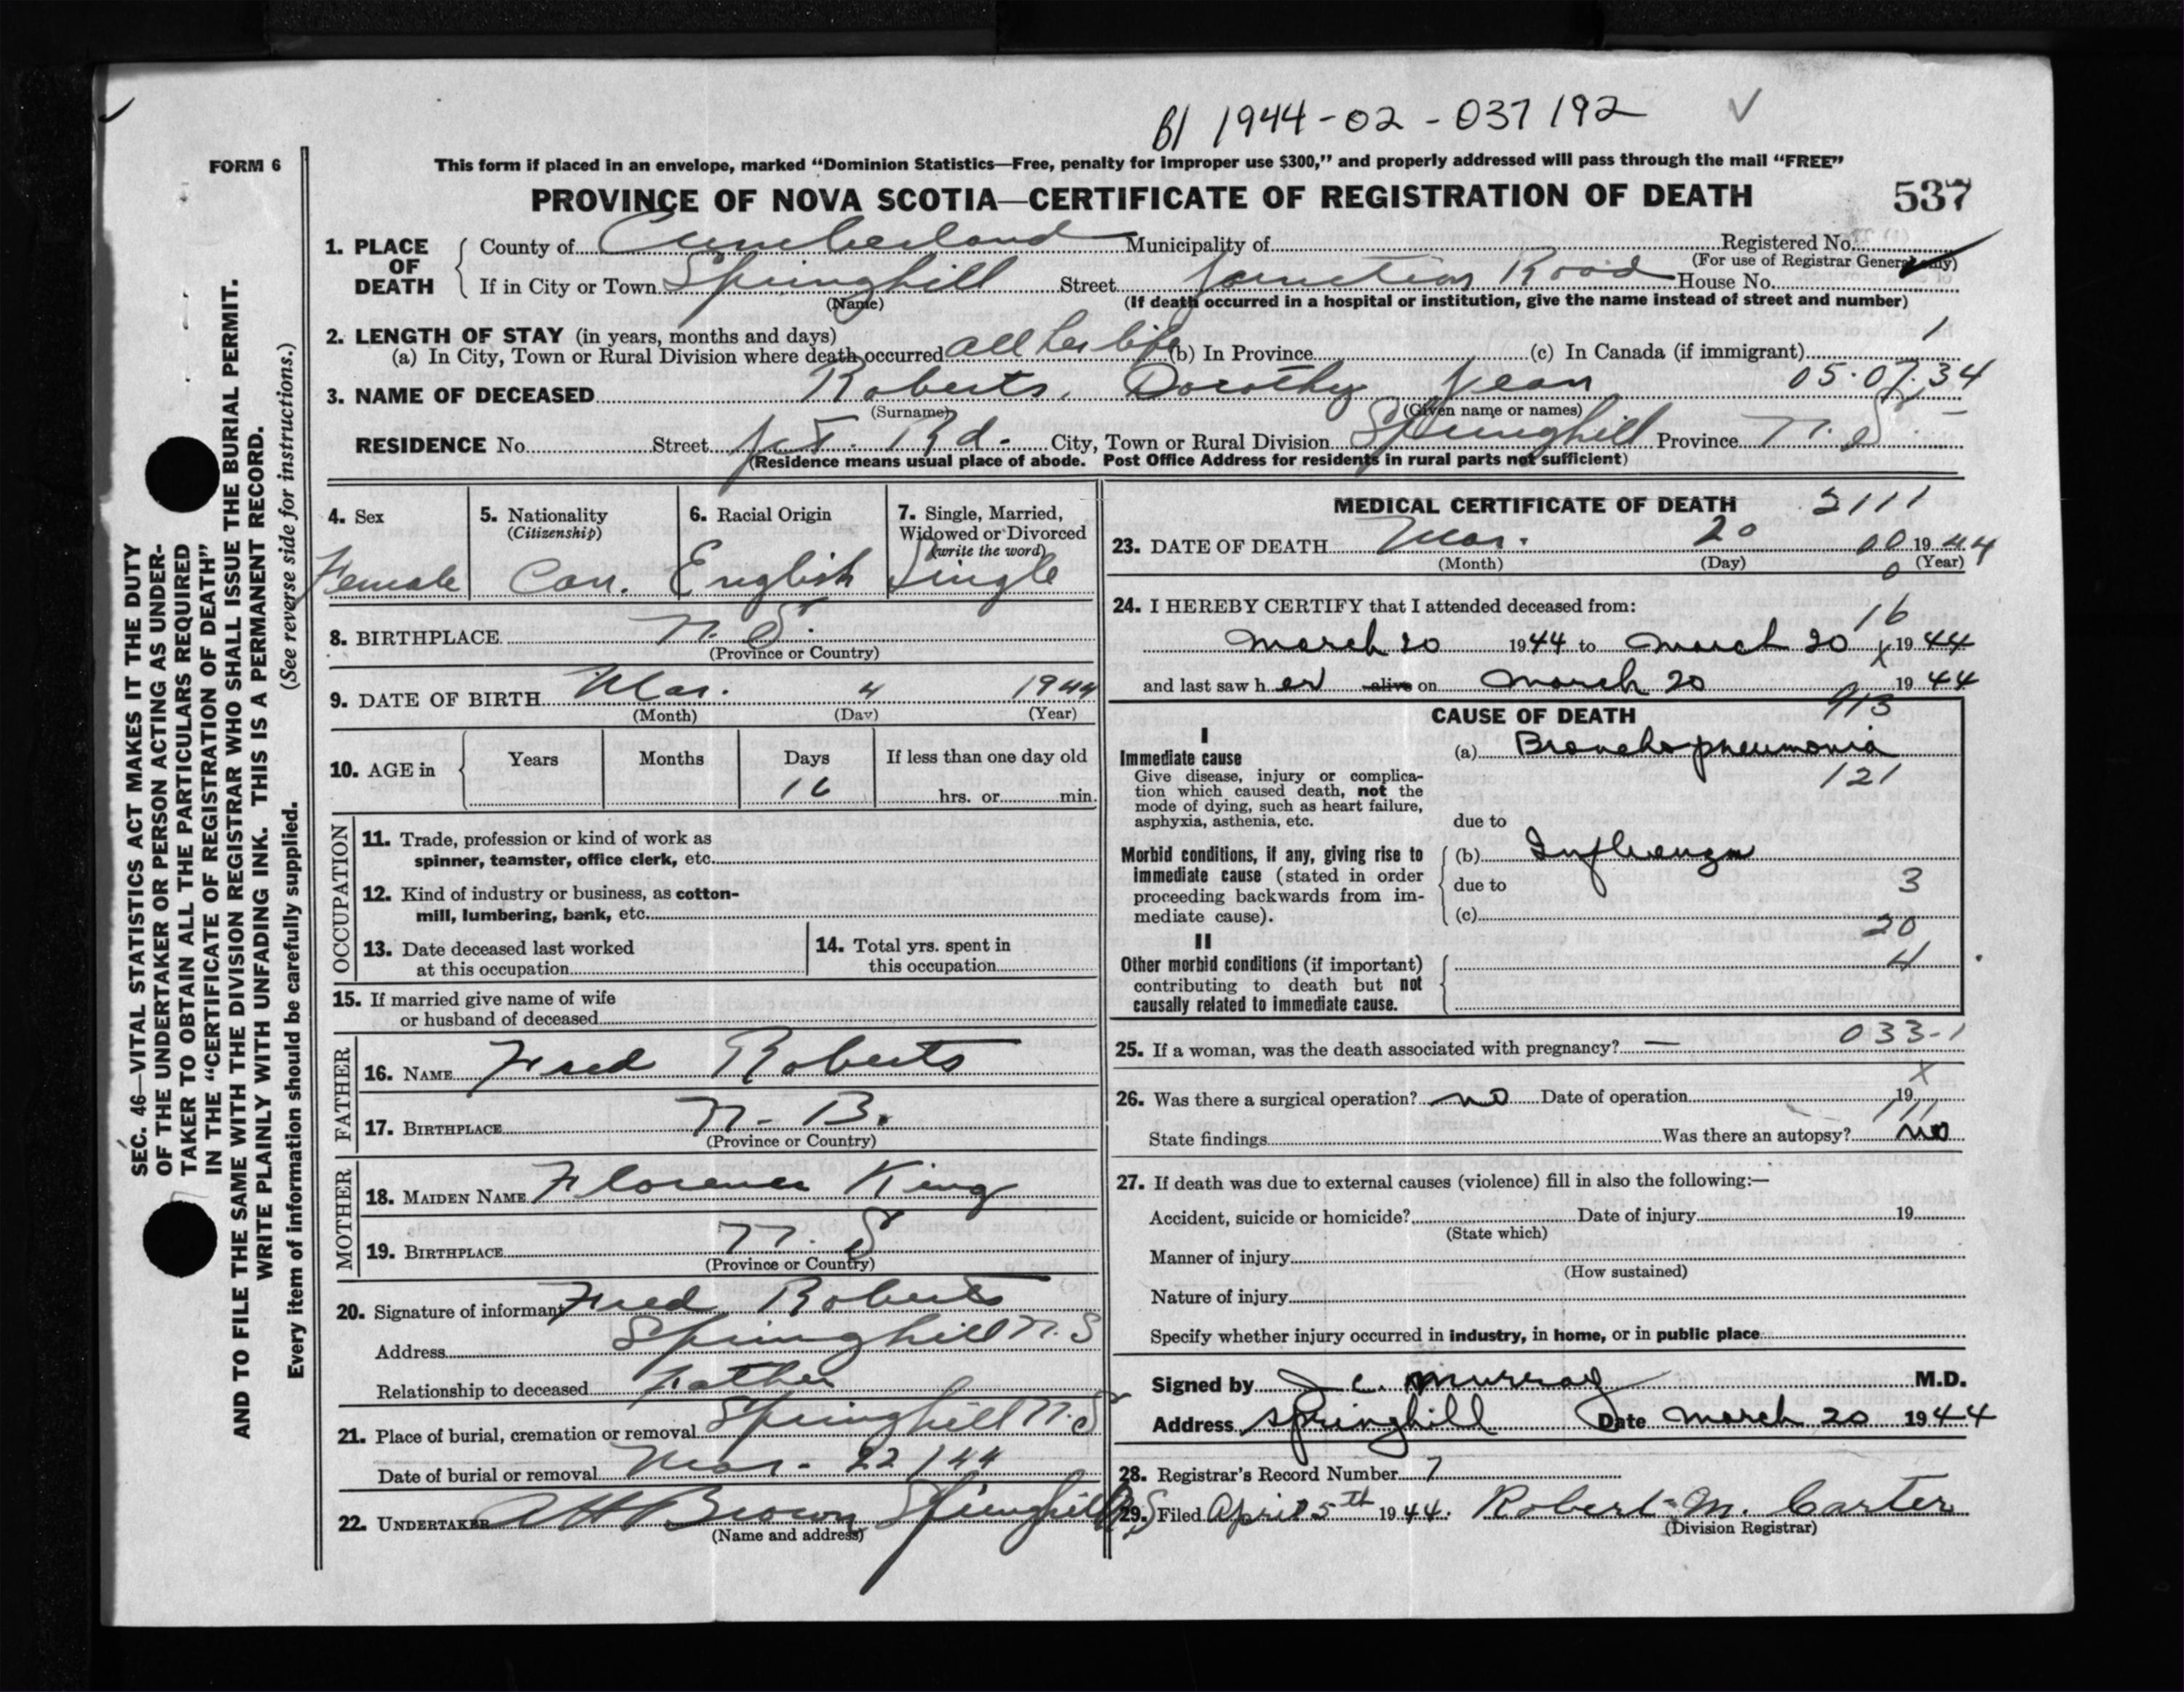 B1 1944-02-037192
FORM 6
This form if placed in an envelope, marked “Dominion Statistics—Free, penalty for improper use $300,” and properly addressed will pass through the mail “FREE”
PROVINCE OF NOVA SCOTIA—CERTIFICATE OF REGISTRATION OF DEATH 537
1. PLACE OF DEATH County of Cumberland Municipality of Registered No.
(For use of Registrar General only)
If in City or Town Springhill Street Junction Road House No.
(Name) (If death occurred in a hospital or institution, give the name instead of street and number)
2. LENGTH OF STAY (in years, months and days) 1
(a) In City, Town or Rural Division where death occurred all her life (b) In Province (c) In Canada (if immigrant)
3. NAME OF DECEASED Roberts, Dorothy Jean 05.07.34
(Surname) (Given name or names)
RESIDENCE No. Street Jct. Rd. City, Town or Rural Division Springhill Province N. S.
(Residence means usual place of abode. Post Office Address for residents in rural parts not sufficient)
4. Sex Female
5. Nationality (Citizenship) Can.
6. Racial Origin English
7. Single, Married, Widowed or Divorced (write the word) Single
8. BIRTHPLACE N. S.
(Province or Country)
9. DATE OF BIRTH Mar. 4 1944
(Month) (Day) (Year)
10. AGE in Years Months Days If less than one day old
16 hrs. or min.
OCCUPATION
11. Trade, profession or kind of work as
spinner, teamster, office clerk, etc.
12. Kind of industry or business, as cotton-
mill, lumbering, bank, etc.
13. Date deceased last worked
at this occupation
14. Total yrs. spent in
this occupation
15. If married give name of wife
or husband of deceased
FATHER
16. NAME Fred Roberts
17. BIRTHPLACE N. B.
(Province or Country)
MOTHER
18. MAIDEN NAME Florence King
19. BIRTHPLACE N. S
(Province or Country)
20. Signature of informant Fred Roberts
Address Springhill N. S
Relationship to deceased Father
21. Place of burial, cremation or removal Springhill N. S
Date of burial or removal Mar. 22/44
22. UNDERTAKER A H Brown Springhill N. S
(Name and address)
MEDICAL CERTIFICATE OF DEATH 2111
23. DATE OF DEATH Mar. 20 00 1944
(Month) (Day) (Year)
0
24. I HEREBY CERTIFY that I attended deceased from:
16
March 20 1944 to March 20 x 1944
and last saw her alive on March 20 1944
CAUSE OF DEATH 913
I
Immediate cause (a) Bronchopneumonia
Give disease, injury or complica-
tion which caused death, not the
mode of dying, such as heart failure,
asphyxia, asthenia, etc.
121
due to
Morbid conditions, if any, giving rise to
immediate cause (stated in order
proceeding backwards from im-
mediate cause).
(b) Influenza
due to 3
(c)
20
II
Other morbid conditions (if important)
contributing to death but not
causally related to immediate cause.
4
033-1
25. If a woman, was the death associated with pregnancy? —
x
26. Was there a surgical operation? no Date of operation 19
111
State findings Was there an autopsy? no
27. If death was due to external causes (violence) fill in also the following:—
Accident, suicide or homicide? Date of injury 19
(State which)
Manner of injury
(How sustained)
Nature of injury
Specify whether injury occurred in industry, in home, or in public place
Signed by J C. Murray M.D.
Address Springhill Date March 20 1944
28. Registrar's Record Number 7
29. Filed April 5th 1944. Robert M. Carter
(Division Registrar)
SEC. 46—VITAL STATISTICS ACT MAKES IT THE DUTY
OF THE UNDERTAKER OR PERSON ACTING AS UNDER-
TAKER TO OBTAIN ALL THE PARTICULARS REQUIRED
IN THE “CERTIFICATE OF REGISTRATION OF DEATH”
AND TO FILE THE SAME WITH THE DIVISION REGISTRAR WHO SHALL ISSUE THE BURIAL PERMIT.
WRITE PLAINLY WITH UNFADING INK. THIS IS A PERMANENT RECORD.
Every item of information should be carefully supplied. (See reverse side for instructions.)